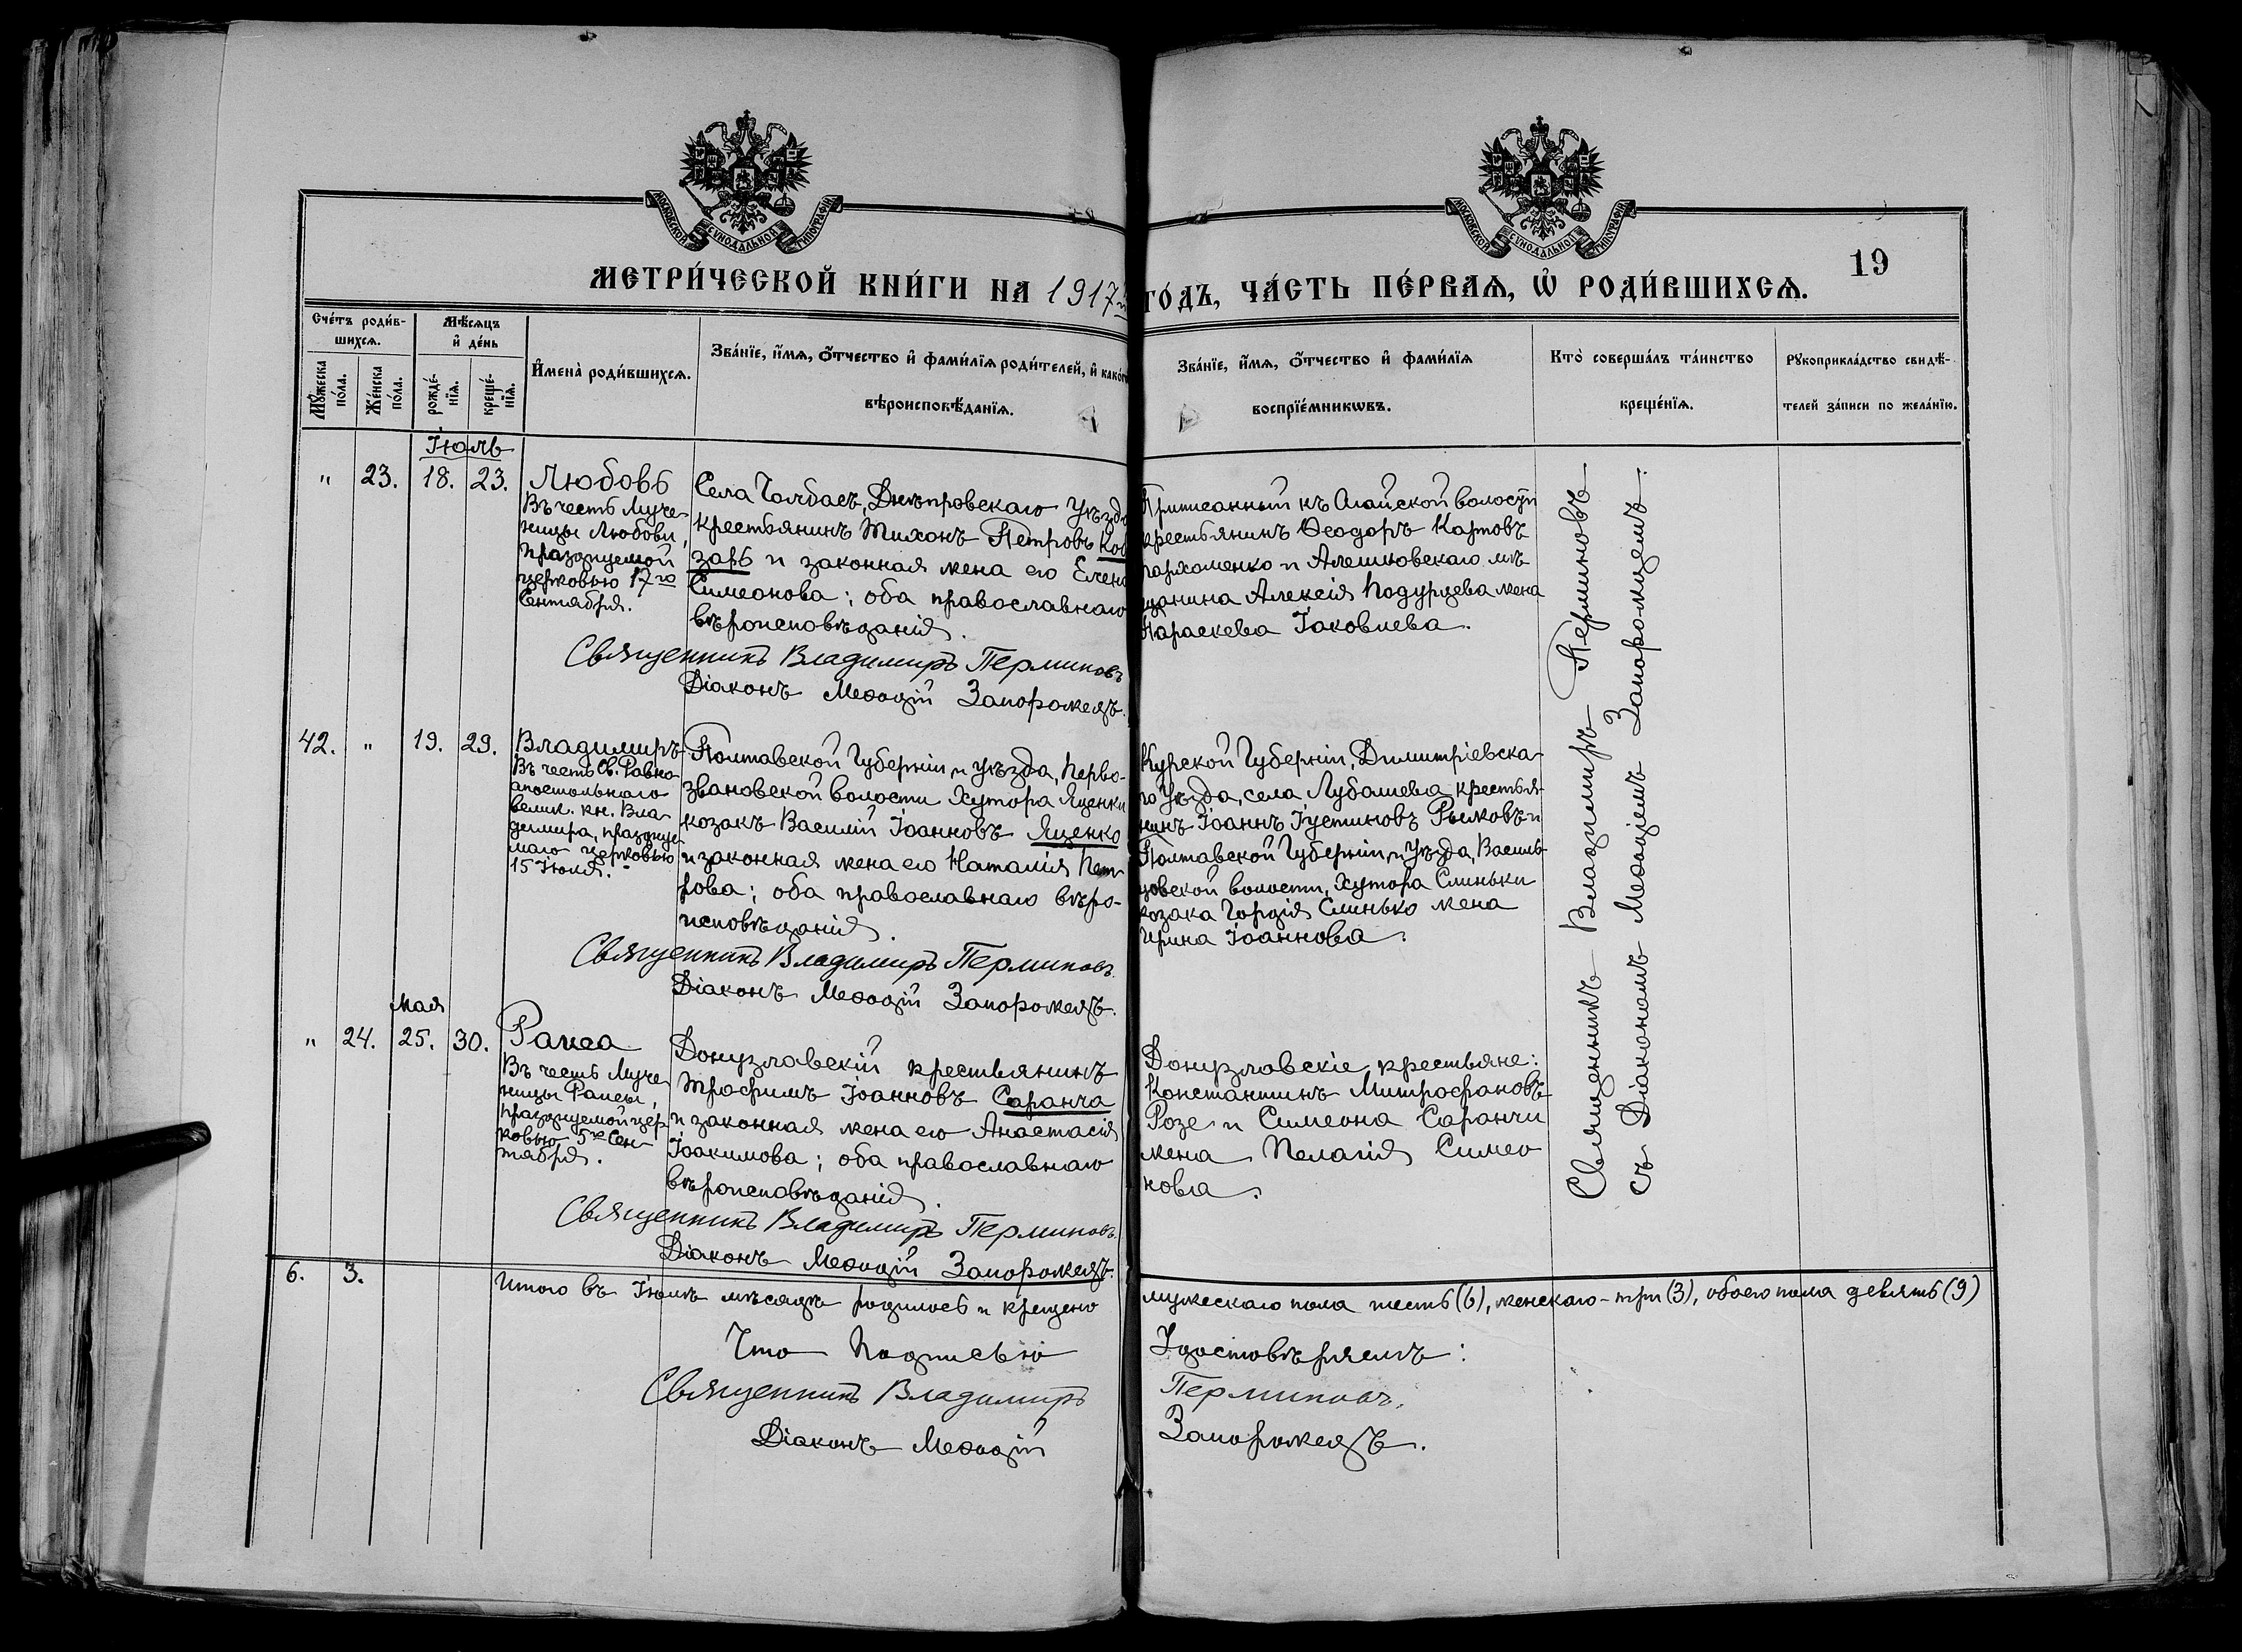 МОСКОВСКОЙ СУНОДАЛЬНОЙ ТИПОГРАФІИ
МОСКОВСКОЙ СУНОДАЛЬНОЙ ТИПОГРАФІИ
19
МЕТРИ́ЧЕСКОЙ КНИ́ГИ НА 1917й ГО́ДЪ, ЧА́СТЬ ПЕ́РВАѦ, Ѡ҆ РОДИ́ВШИХСѦ.
Сче́тъ роди́в-
шихсѧ.
Мꙋ́жеска по́ла.
Же́нска по́ла.
Мѣ́сѧцъ
и҆ де́нь
рожде́-
нїѧ.
креще́-
нїѧ.
И҆мена̀ роди́вшихсѧ.
Зва́нїе, и҆́мѧ, ѻ҆́тчество и҆ фами́лїѧ роди́телей, и҆ како́гѡ
вѣроисповѣ́данїѧ.
Зва́нїе, и҆́мѧ, ѻ҆́тчество и҆ фами́лїѧ
воспрїе́мникѡвъ.
Кто̀ соверша́лъ та́инство
креще́нїѧ.
Рꙋкоприкла́дство свидѣ́-
телей за́писи по жела́нїю.
Іюль
" 23. 18. 23.
Любовь
Въ честь Муче-
ницы Любови,
празднуемой
церковью 17го
Сентября.
Села Чолбасъ, Днѣпровскаго Уѣзда
крестьянинъ Тихонъ Петровъ Коб
зарь и законная жена его Елена
Симеонова; оба православнаго
вѣроисповѣданія.
Священникъ Владимиръ Перминовъ
Діаконъ Меѳодій Запорожецъ.
Приписанный къ Агайской волости
крестьянинъ Ѳеодоръ Карповъ
Пархоменко и Алешковскаго мѣ
щанина Алексія Подурцева жена
Параскева Іаковлева.
42. " 19. 29.
Владимиръ
Въ честь Св. Равно
апостольнаго
велик. кн. Вла
димира, праздн­уе
маго церковью
15 Іюля.
Полтавской Губерніи, и Уѣзда, Перво-
звановской волости Хутора Яценки
козакъ Василій Іоанновъ Яценко
и законная жена его Наталія Пет
рова; оба православнаго вѣро-
исповѣданія.
Священникъ Владимиръ Перминовъ.
Діаконъ Меѳодій Запорожецъ.
Курской Губерніи, Димитріевска-
го Уѣзда, села Лубашева крестья-
нинъ Іоаннъ Іустиновъ Рыжковъ и
Полтавской Губерніи, и Уѣзда, Василь-
цовской волости, Хутора Слиньки
козака Гордія Слинько жена
Ирина Іоаннова.
Мая
" 24. 25. 30.
Раиса
Въ честь Муче
ницы Раисы,
празднуемой цер
ковью 5го Сен-
тября.
Донузлавскій крестьянинъ
Трофимъ Іоанновъ Саранча
и законная жена его Анастасія
Іоакимова; оба православнаго
вѣроисповѣданія.
Священникъ Владимиръ Перминовъ.
Діаконъ Меѳодій Запорожецъ.
Донузлавскіе крестьяне:
Константинъ Митрофановъ
Розе и Симеона Саранчи
жена Пелагія Симео
нова.
Священникъ Владимиръ Перминовъ
съ Діакономъ Меѳодіемъ Запорожцемъ.
6. 3.
Итого въ Іюлѣ мѣсяцѣ родилось и крещено мужескаго пола шесть (6), женскаго-три (3), обоего пола девять (9)
Что Подписью Удостовѣряемъ:
Священникъ Владимиръ Перминовъ.
Діаконъ Меѳодій Запорожецъ.